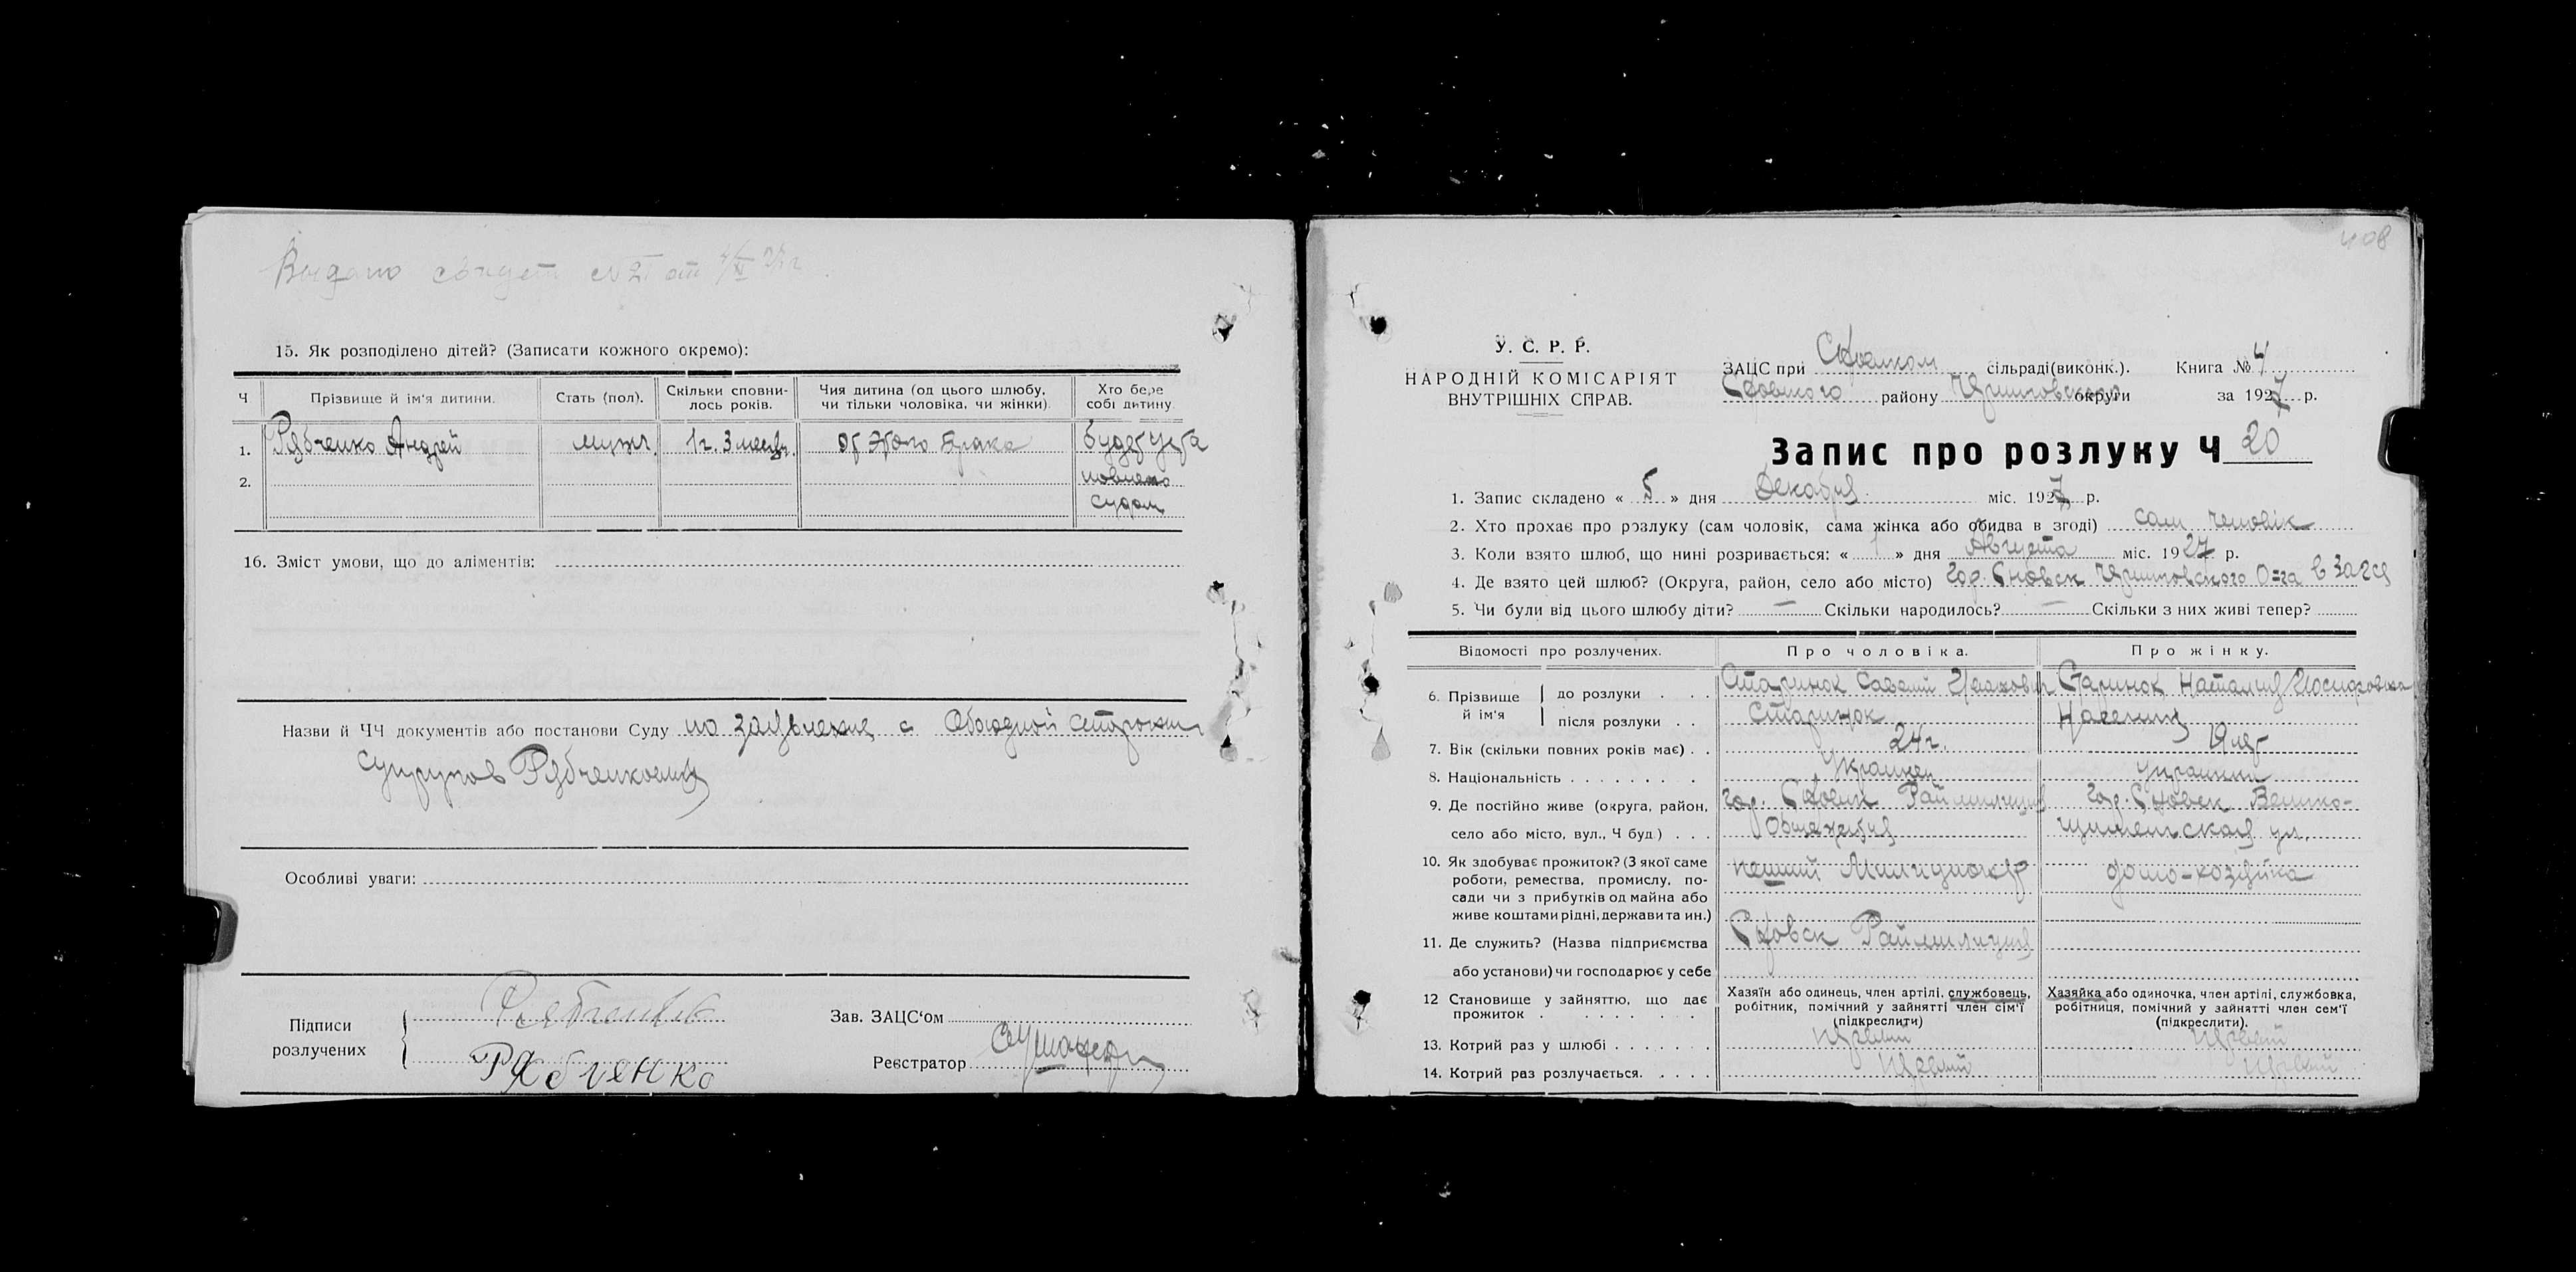 Выдано свидет № 21 от
15. Як розподілено дітей? (Записати кожного окремо):
Ч
Прізвище й ім'я дитини.
Стать (пол).
Скільки сповни-
лось років.
Чия дитина (од цього шлюбу,
чи тільки чоловіка, чи жінки)
Хто бере
собі дитину
1. Рябченко Андрей мужч. 1 г. 3 месяц. от этого брака будет уста
2. новлено
судом
16. Зміст умови, що до аліментів:
Назви й ЧЧ документів або постанови Суду по заявление с обоюдной стороны
супругов Рябченковых
Особливі уваги:
Підписи
розлучених
Рябченко
Рябченко
Зав. ЗАЦС'ом
Реєстратор
408
У. С. Р. Р.
НАРОДНІЙ КОМІСАРІЯТ
ВНУТРІШНІХ СПРАВ.
ЗАЦС при сільраді(виконк.). Книга № 4
Сновского району Черниговского округи за 1927 р.
Запис про розлуку Ч 20
1. Запис складено « 5 » дня Декабря міс. 1927 р.
2. Хто прохає про розлуку (сам чоловік, сама жінка або обидва в згоді) сам человік
3. Коли взято шлюб, що нині розривається: « 1 » дня Августа міс. 1927 р.
4. Де взято цей шлюб? (Округа, район, село або місто) Гор. Сновск Черниговского О-га в Загся
5. Чи були від цього шлюбу діти? — Скільки народилось? — Скільки з них живі тепер?
Відомості про розлучених.
Про чоловіка.
Про жінку.
6. Прізвище й ім'я
до розлуки . . . Старинок Савелий Иванович Старинок Наталия Иосифовна
після розлуки . . Старинок
7. Вік (скільки повних років має) . . 24 г. 19 лет
8. Національність . . . . . . . . Украинец украинка
9. Де постійно живе (округа, район, гор. Сновск Раймилиция гор. Сновск Велико-
село або місто, вул., Ч буд) . . . Общежития ул.
10. Як здобуває прожиток? (З якої саме
роботи, ремества, промислу, по-
сади чи з прибутків од майна або
живе коштами рідні, держави та ин.)
пеший Милиционер
домо-хозяйка
11. Де служить? (Назва підприємства Сновск Раймилиция
або установи) чи господарює у себе
12 Становище у зайняттю, що дає
прожиток . . . . . . .
Хазяїн або одинець, член артілі, службовець,
робітник, помічний у зайнятті член сім'ї
(підкреслити)
Хазяйка або одиночка, член артілі, службовка,
робітниця, помічний у зайнятті член сем'ї
(підкреслити).
13. Котрий раз у шлюбі . . . . . . . Первый Первый
14. Котрий раз розлучається. . . . . Первый Первый